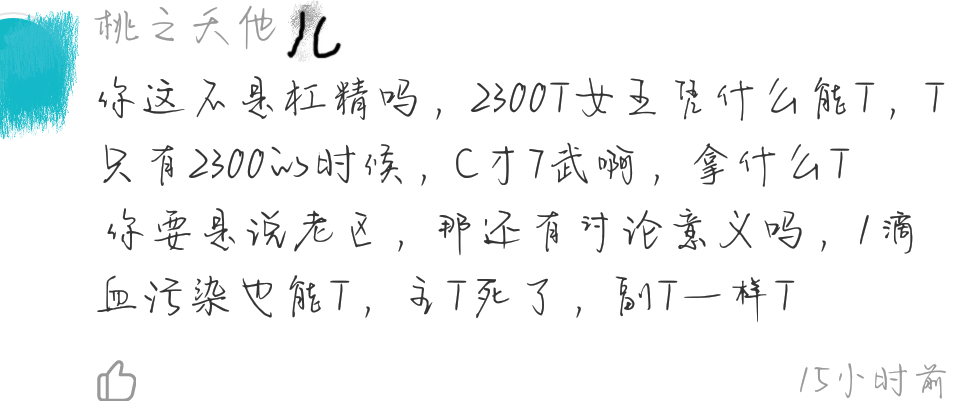 桃之夭他儿
你这不是杠精吗，2300T女王凭什么能T，T
只有2300的时候，C才7武啊，拿什么T
你要是说老区，那还有讨论意义吗，1滴
血污染也能T，主T死了，副T一样T
15小时前